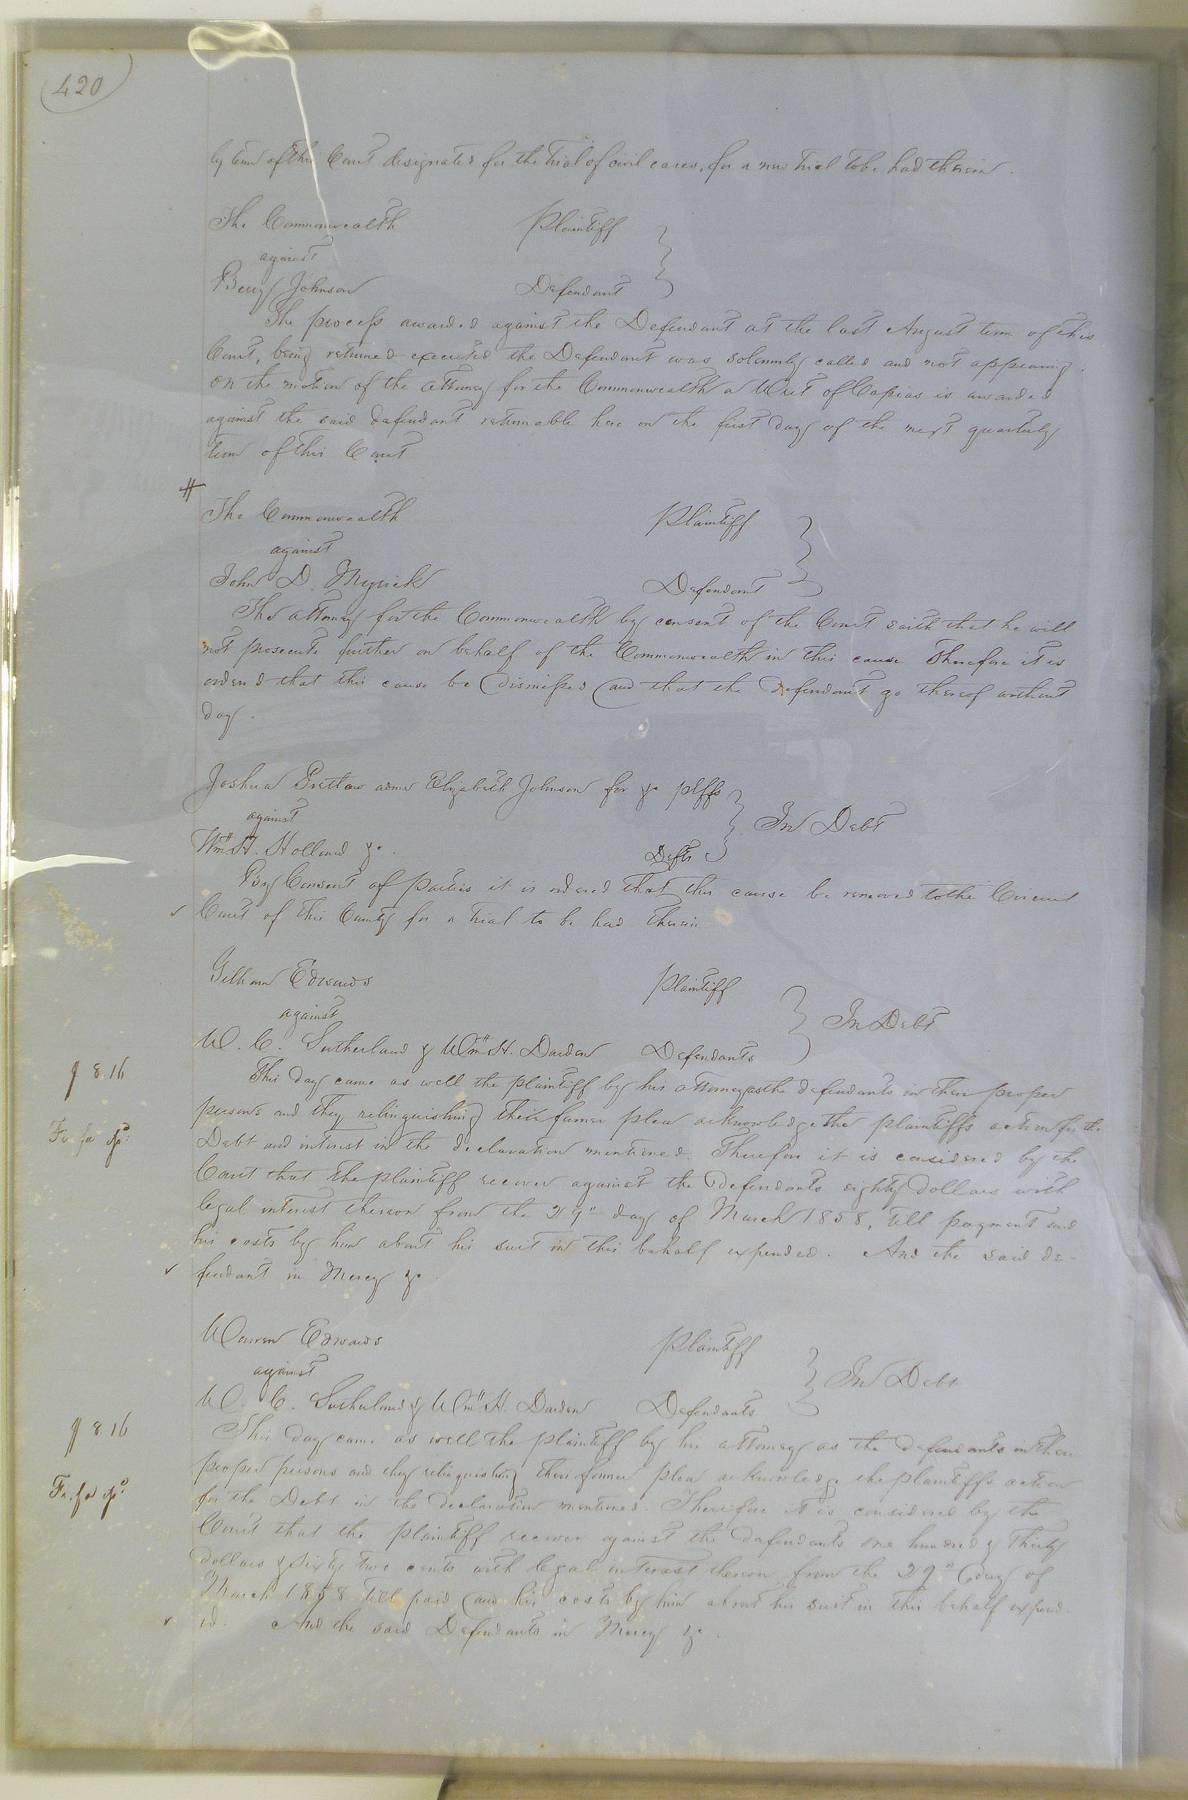 420
by law of this Court designated for the Trial of civil cases, for a new Trial to be had therein.
The Commonwealth Plaintiff
against
Benj Johnson Defendant
The process awarded against the Defendant at the last August term of this
Court, being returned executed the Defendant was solemnly called and not appearing.
on the motion of the attorney for the Commonwealth a Writ of Capias is awarded
against the said defendant returnable here on the first day of the next quarterly
term of this Court
#
The Commonwealth Plaintiff
against
John D. Myrick Defendant
The attorney for the Commonwealth by consent of the Court saith that he will
not prosecute further on behalf of the Commonwealth in this cause Therefore it is
ordered that this cause be Dismissed and that the Defendant go thereof without
day.
Joshua Pretlow admr Elizabeth Johnson for &c plffs
against In Debt
Wm H. Holland &c. Defts
By Consent of parties it is ordered that this cause be removed to the Circuit
✓ Court of this County for a trial to be had therein
Edwards Plaintiff
against In Debt
W. C. Sutherland & Wm H. Darden Defendants
8.16
This day came as well the plaintiff by his attorney as the defendants in their proper
persons and they relinquishing their former plea acknowledge the plaintiffs action for the
Fi. fa
Debt and interest in the declaration mentioned. Therefore it is considered by the
Court that the plaintiff recover against the Defendants eighty dollars with
legal interest thereon from the 29" day of March 1858, till payment and
his costs by him about his suit in this behalf expended. And the said de-
✓ fendant in Mercy &c
Warren Edwards Plaintiff
against In Debt
W. C. Sutherland & Wm H. Darden Defendants
8.16
This day came as well the plaintiff by his attorney as the defendants in their
proper persons and they relinquishing their former plea acknowledge the plaintiffs action
Fi. fa
for the Debt in the declaration mentioned. Therefore it is considered by the
Court that the plaintiff recover against the defendants one hundred & Thirty
dollars & Sixty two cents with legal interest thereon from the 29" day of
March 1858 till paid and his costs by him about his suit in this behalf expend
✓ ed. And the said Defendants in Mercy &c.